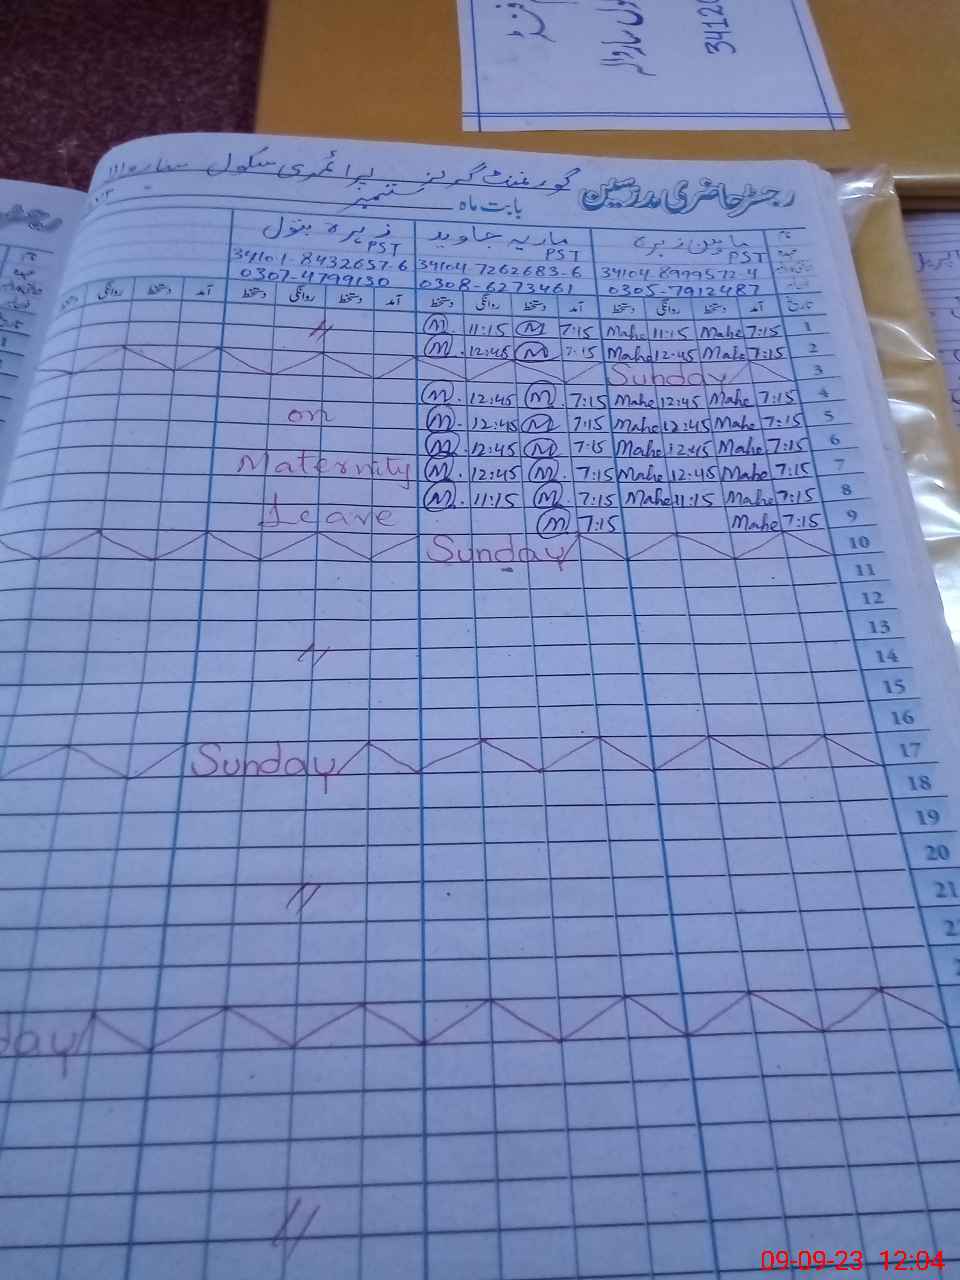 34120
رجسٹر حاضری مدرسین گورنمنٹ گرلز پرائمری سکول
بابت ماہ ستمبر
نام ماہین زہرہ ماریہ جاوید زہرہ بتول
عہدہ PST PST PST
34104-8999572-4 34104-7262683-6 34101-8432657-6
0305-7912487 0308-6273461 0307-4799150
تاریخ آمد دستخط روانگی دستخط آمد دستخط روانگی دستخط آمد دستخط روانگی دستخط آمد دستخط روانگی دستخط
1 7:15 Mahe 11:15 Mahe 7:15 M 11:15 M. "
2 7:15 Mahe 12:45 Mahe 7:15 M 12:45 M.
3 Sunday
4 7:15 Mahe 12:45 Mahe 7:15 M. 12:45 M.
5 7:15 Mahe 12:45 Mahe 7:15 M 12:45 M. on
6 7:15 Mahe 12:45 Mahe 7:15 M 12:45 M.
7 7:15 Mahe 12:45 Mahe 7:15 M. 12:45 M. Maternity
8 7:15 Mahe 11:15 Mahe 7:15 M. 11:15 M.
9 7:15 Mahe 7:15 M Leave
10 Sunday
11
12
13
14 "
15
16
17 Sunday
18
19
20
21 "
day
"
09-09-23 12:04